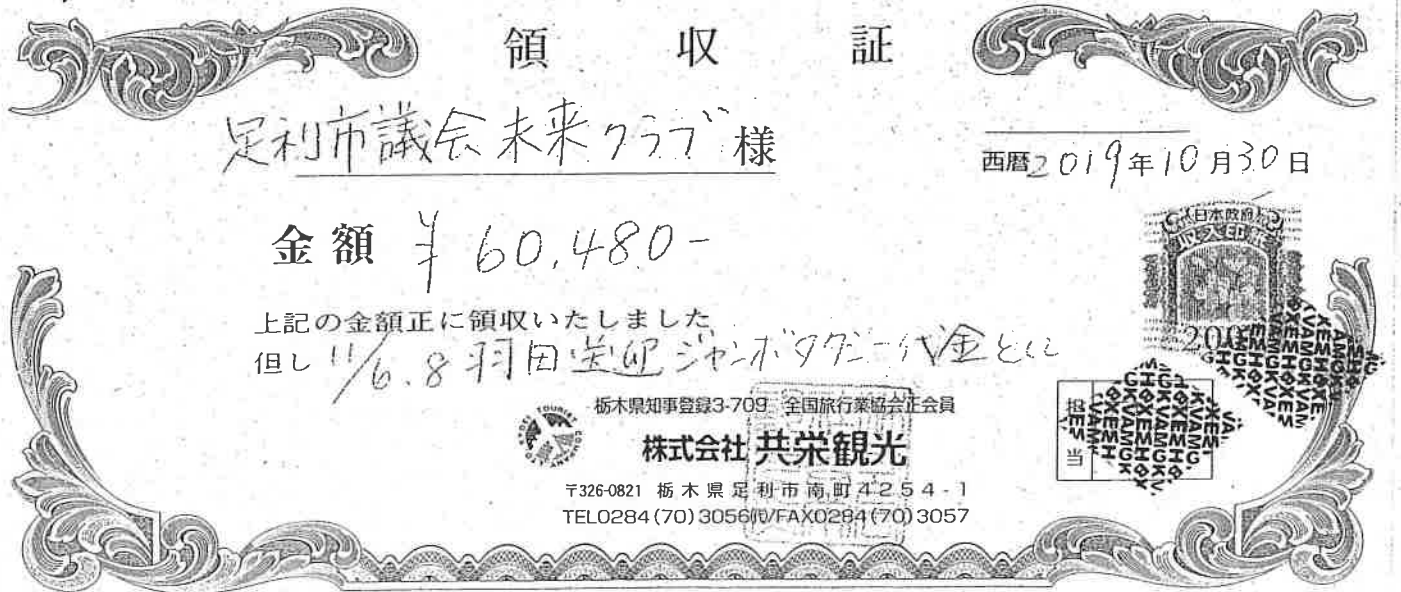 領収証
足利市議会未来クラブ 様
西暦2019年10月30日
金額 ¥60,480-
上記の金額正に領収いたしました
但し 11/6.8 羽田送迎ジャンボタクシー代金として
日本政府
収入印紙
200
栃木県知事登録3-709 全国旅行業協会正会員
株式会社 共栄観光
〒326-0821 栃木県足利市南町4254-1
TEL0284(70)3056㈹/FAX0284(70)3057
担当